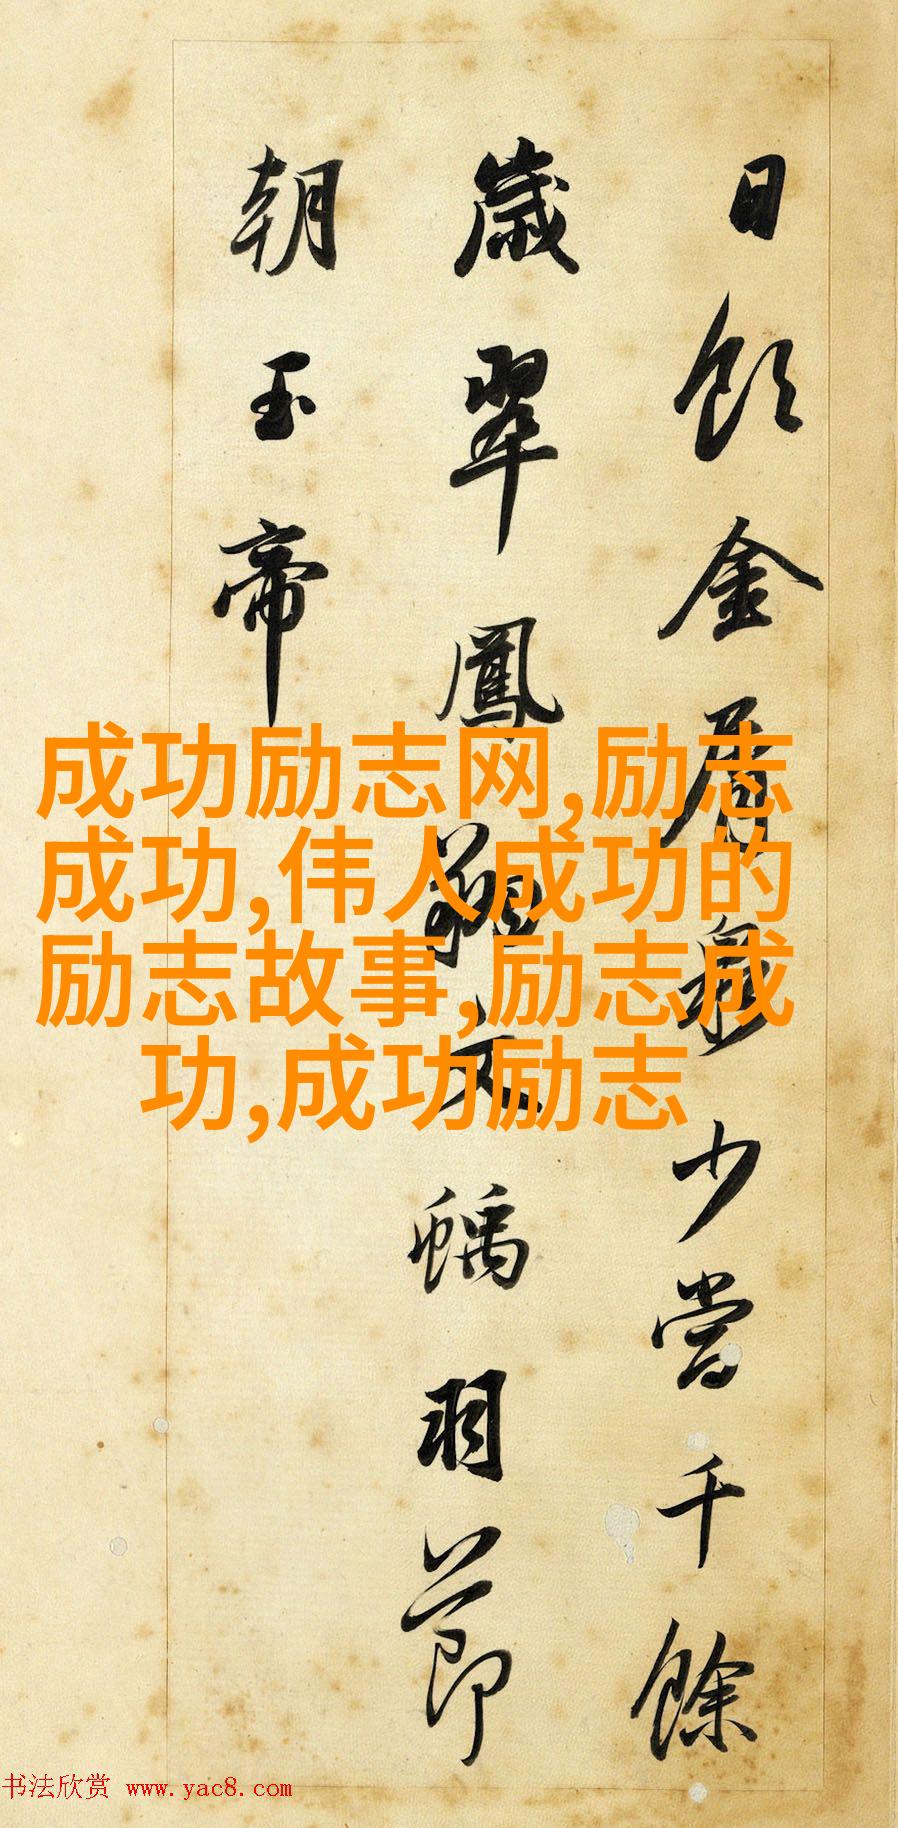 日飲金屑泉少當千餘
歲翠鳳翔文螭羽節
朝玉帝
成功励志网,励志
成功,伟人成功的
励志故事,励志成
功,成功励志
书法欣赏 www.yac8.com